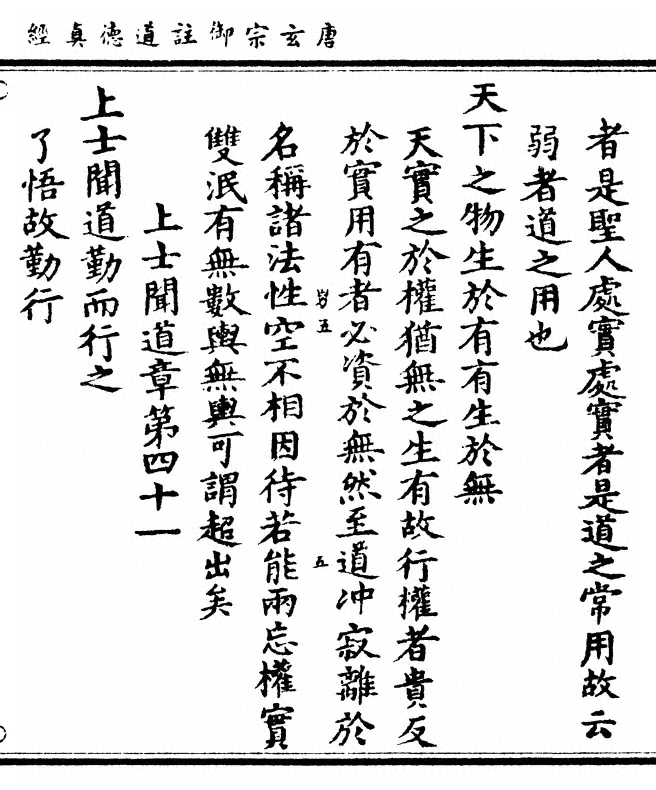 唐玄宗御註道德真經
者是聖人處實處實者是道之常用故云
弱者道之用也
天下之物生於有有生於無
天實之於權猶無之生有故行權者貴反
於實用有者必資於無然至道沖寂離於
五
名稱諸法性空不相因待若能兩忘權實
雙泯有無數輿無輿可謂超出矣
上士聞道章第四十一
上士聞道勤而行之
了悟故勤行